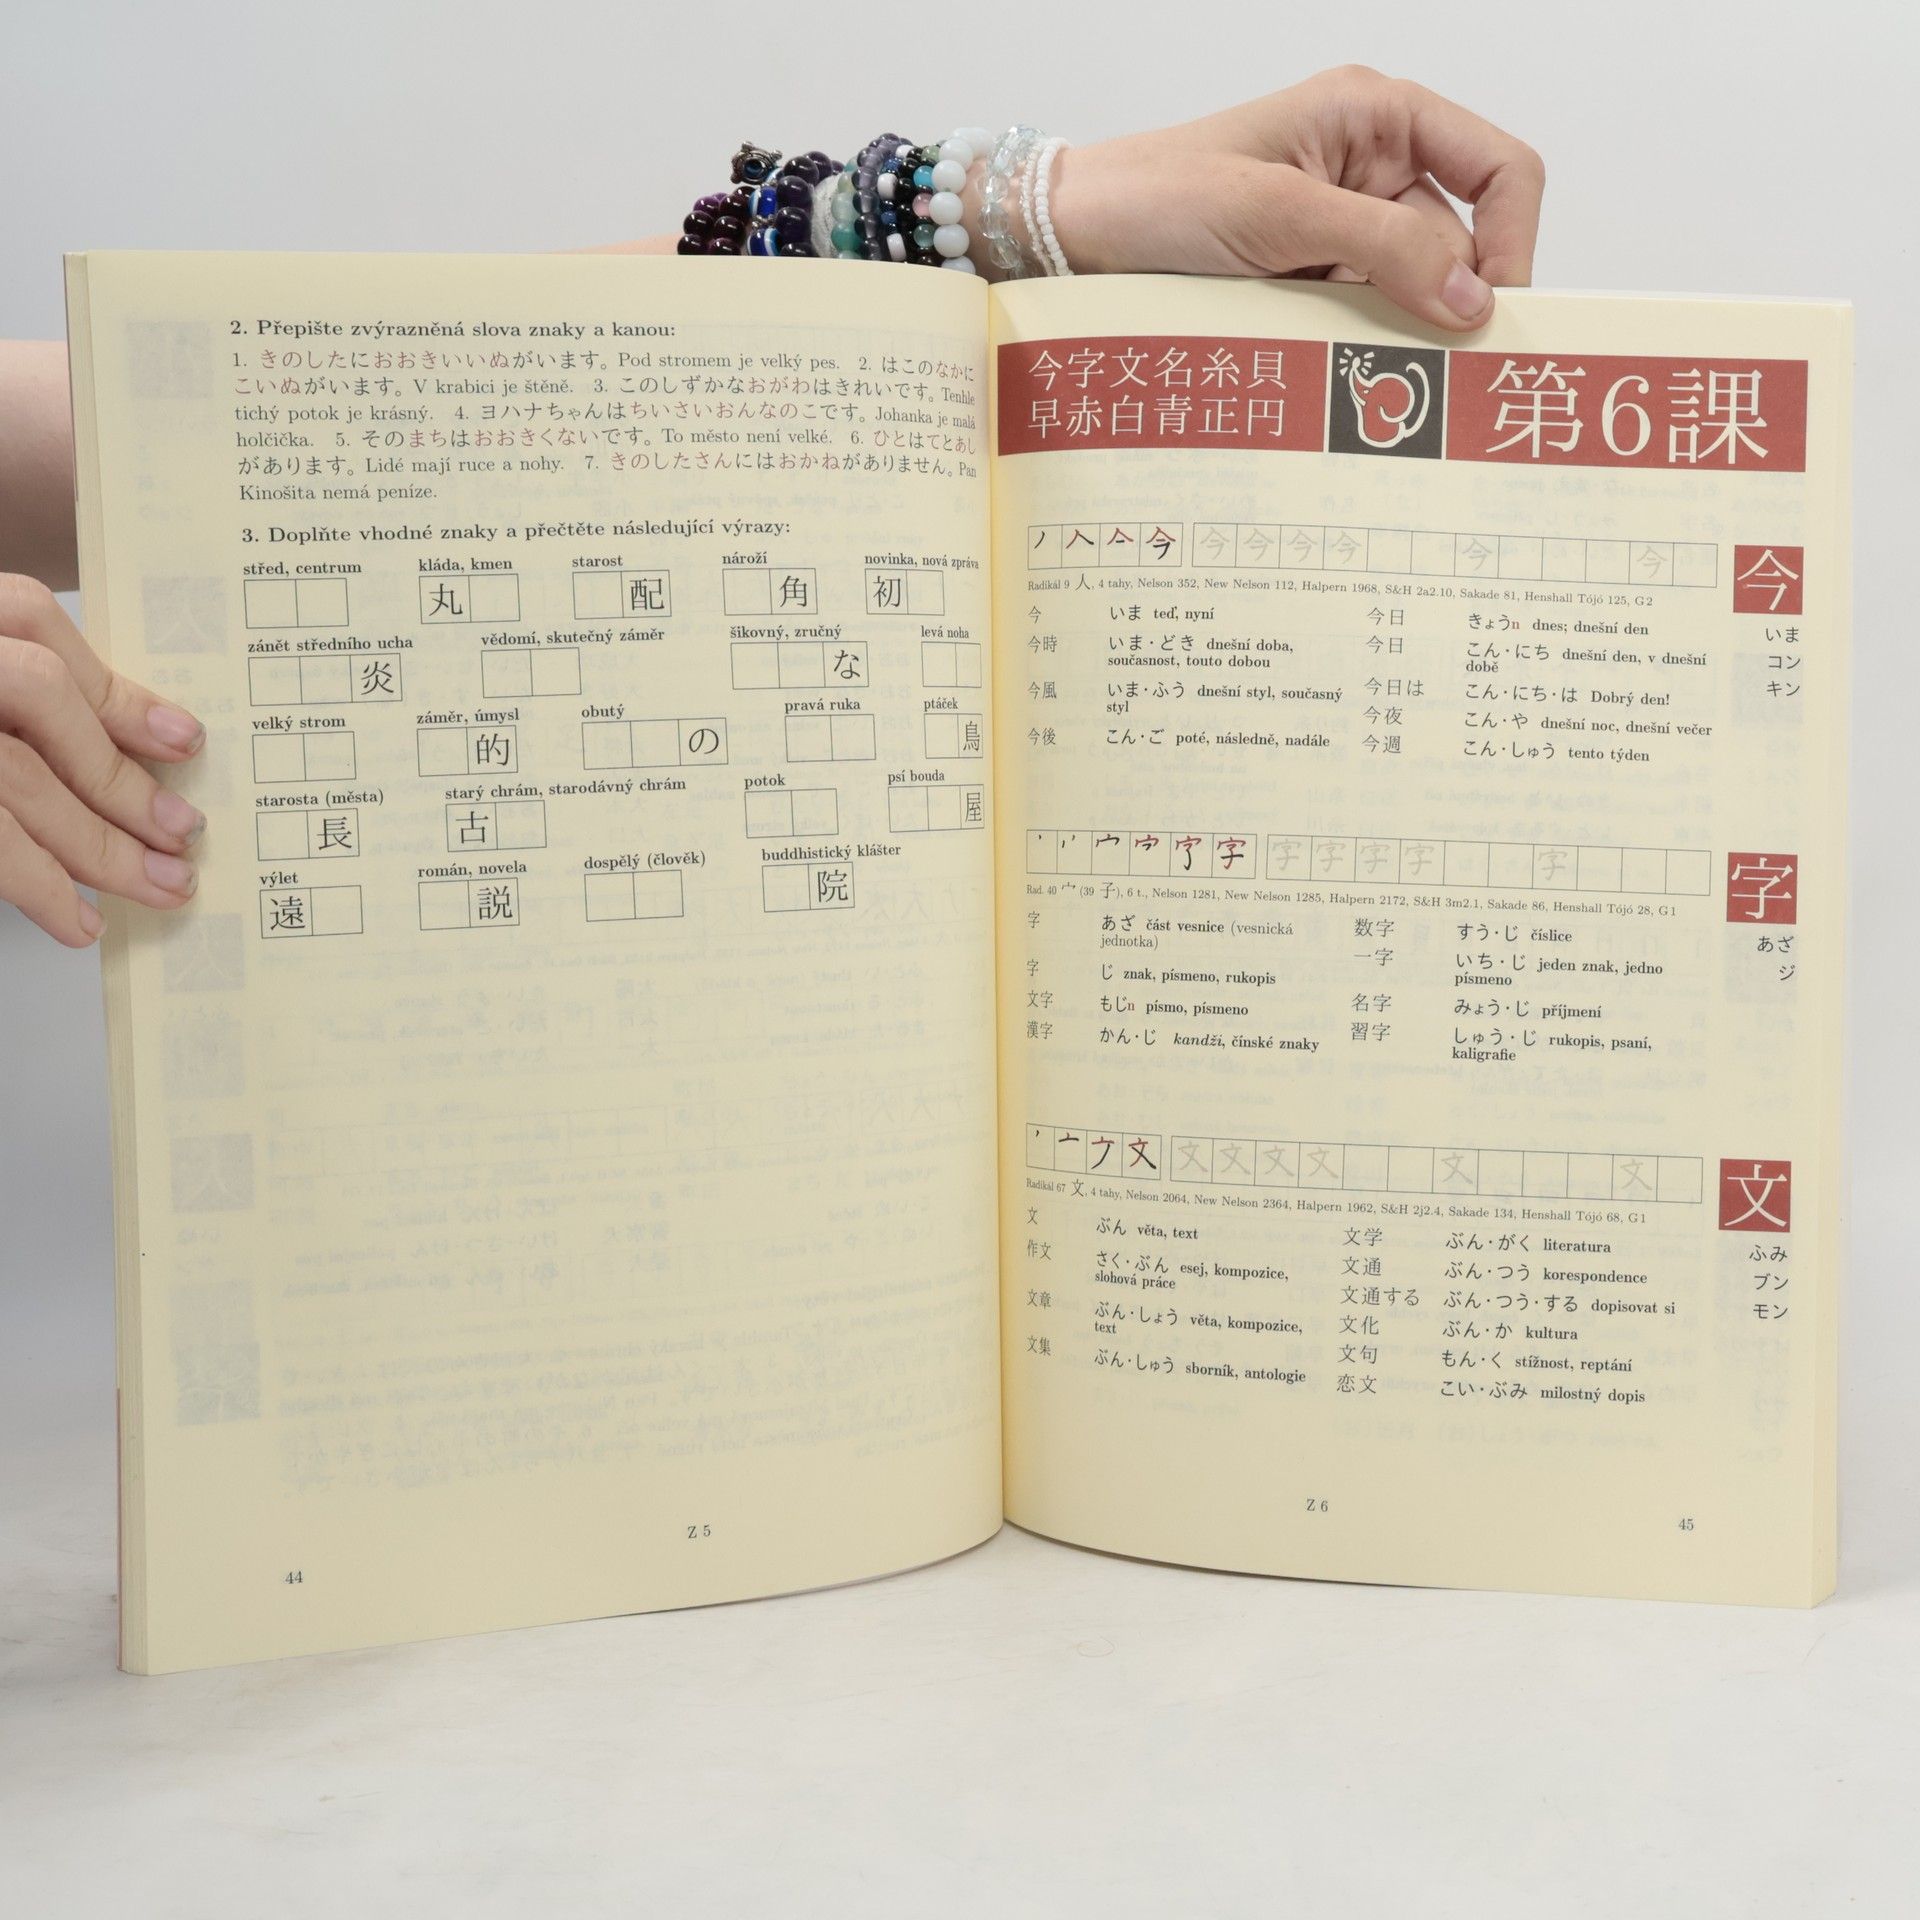 2. Přepište zvýrazněná slova znaky a kanou:
1. きのしたにおおきいいぬがいます。Pod stromem je velký pes. 2. はこのなかに
こいぬがいます。V krabici je štěně. 3. このしずかなおがわはきれいです。Tenhle
tichý potok je krásný. 4. ヨハナちゃんはちいさいおんなのこです。Johanka je malá
holčička. 5. そのまちはおおきくないです。To město není velké. 6. ひとはてとあし
があります。Lidé mají ruce a nohy. 7. きのしたさんにはおかねがありません。Pan
Kinošita nemá peníze.
3. Doplňte vhodné znaky a přečtěte následující výrazy:
střed, centrum kláda, kmen starost nároží novinka, nová zpráva
丸 配 角 初
zánět středního ucha vědomí, skutečný záměr šikovný, zručný levá noha
炎 な
velký strom záměr, úmysl obutý pravá ruka ptáček
的 の 鳥
starosta (města) starý chrám, starodávný chrám potok psí bouda
長 古 屋
výlet román, novela dospělý (člověk) buddhistický klášter
遠 説 院
Z 5
44
今字文名糸貝
早赤白青正円
第6課
今 今 今 今 今 今 今
今
Radikál 9 人, 4 tahy, Nelson 352, New Nelson 112, Halpern 1968, S&H 2a2.10, Sakade 81, Henshall Tójó 125, G2
いま
コン
キン
今 いま teď, nyní
今時 いま・どき dnešní doba,
současnost, touto dobou
今風 いま・ふう dnešní styl, současný
styl
今後 こん・ご poté, následně, nadále
今日 きょうn dnes; dnešní den
今日 こん・にち dnešní den, v dnešní
době
今日は こん・にち・は Dobrý den!
今夜 こん・や dnešní noc, dnešní večer
今週 こん・しゅう tento týden
字 字 字 字 字 字
字
Rad. 40 宀 (39 子), 6 t., Nelson 1281, New Nelson 1285, Halpern 2172, S&H 3m2.1, Sakade 86, Henshall Tójó 28, G1
あざ
ジ
字 あざ část vesnice (vesnická
jednotka)
字 じ znak, písmeno, rukopis
文字 もじn písmo, písmeno
漢字 かん・じ kandži, čínské znaky
数字 すう・じ číslice
一字 いち・じ jeden znak, jedno
písmeno
名字 みょう・じ příjmení
習字 しゅう・じ rukopis, psaní,
kaligrafie
文 文 文 文 文 文 文
文
Radikál 67 文, 4 tahy, Nelson 2064, New Nelson 2364, Halpern 1962, S&H 2j2.4, Sakade 134, Henshall Tójó 68, G1
ふみ
ブン
モン
文 ぶん věta, text
作文 さく・ぶん esej, kompozice,
slohová práce
文章 ぶん・しょう věta, kompozice,
text
文集 ぶん・しゅう sborník, antologie
文学 ぶん・がく literatura
文通 ぶん・つう korespondence
文通する ぶん・つう・する dopisovat si
文化 ぶん・か kultura
文句 もん・く stížnost, reptání
恋文 こい・ぶみ milostný dopis
Z 6
45